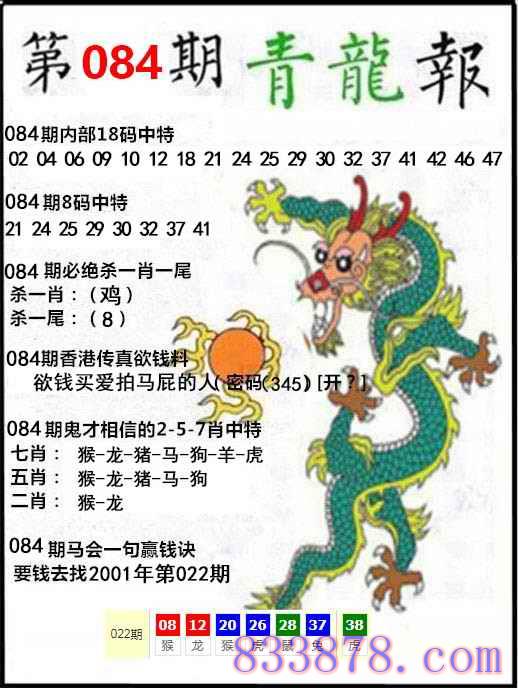 第084期青龍報
084期内部18码中特
02 04 06 09 10 12 18 21 24 25 29 30 32 37 41 42 46 47
084期8码中特
21 24 25 29 30 32 37 41
084期必绝杀一肖一尾
杀一肖：（鸡）
杀一尾：（8）
084期香港传真欲钱料
欲钱买爱拍马屁的人(密码(345)[开？]
084期鬼才相信的2-5-7肖中特
七肖： 猴-龙-猪-马-狗-羊-虎
五肖： 猴-龙-猪-马-狗
二肖： 猴-龙
084期马会一句赢钱诀
要钱去找2001年第022期
022期 08 12 20 26 28 37 38
猴 龙 猴 虎 鼠 兔 虎
833878.com